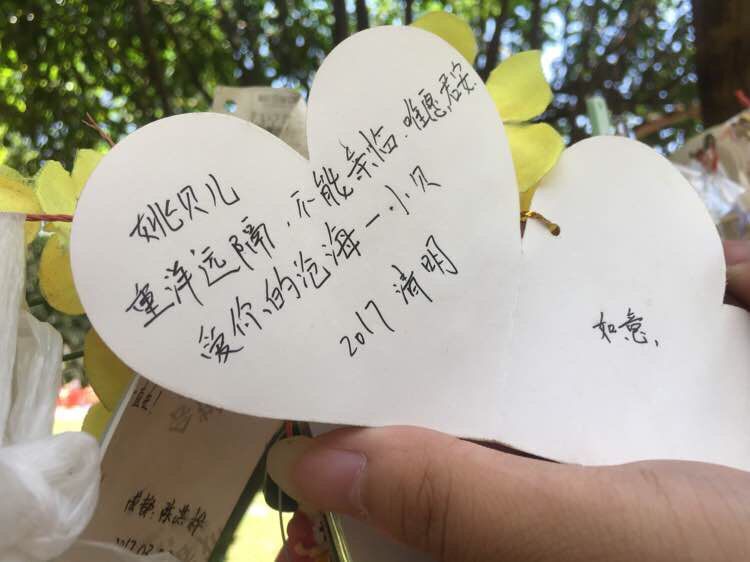 姚贝儿
重洋远隔,不能亲临.唯愿君安.
爱你的沧海一小贝
2017 清明
如意,